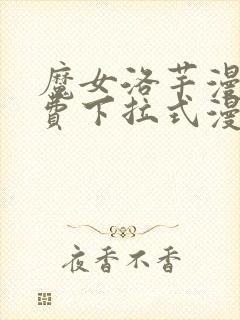 魔女洛芊漫
費下拉式漫
夜香不香